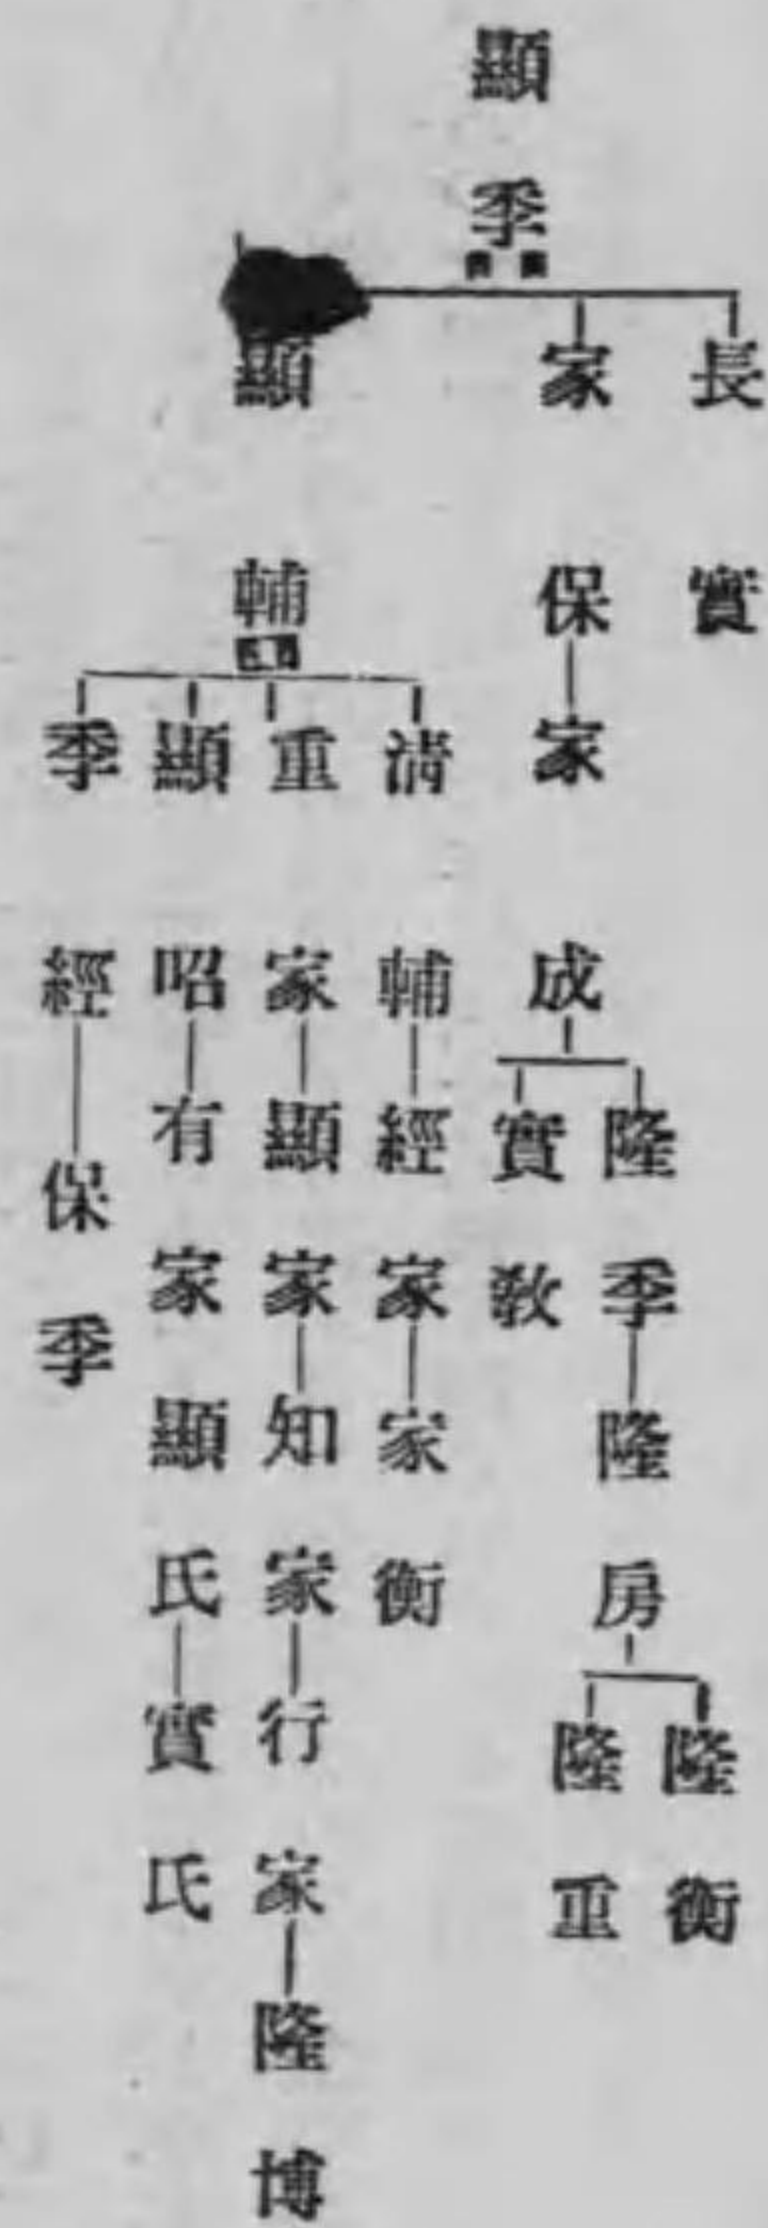 顯季
長實
家保―家成
隆季―隆房
隆衡
隆重
實敎
顯輔
淸輔―經家―家衡
重家―顯家―知家―行家―隆博
顯昭―有家 顯氏―實氏
季經―保季